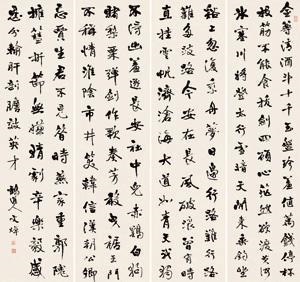 金尊清酒斗十千玉盤珍羞直萬錢停杯
投筯不能食拔劍四顧心茫然欲渡黃河
冰塞川將登太行雪暗天閒來垂釣坐
溪上忽復乘舟夢日邊行路難行路
難多歧路今安在長風破浪會有時
直挂雲帆濟滄海大道如青天我獨
不得出羞逐長安社中兒赤雞白狗
賭梨栗彈劍作歌奏苦聲曳裾王門
不稱情淮陰市井笑韓信漢朝公卿
忌賈生君不見昔時燕家重郭隗
擁篲折節無嫌猜劇辛樂毅感
恩分輸肝剖膽效英才